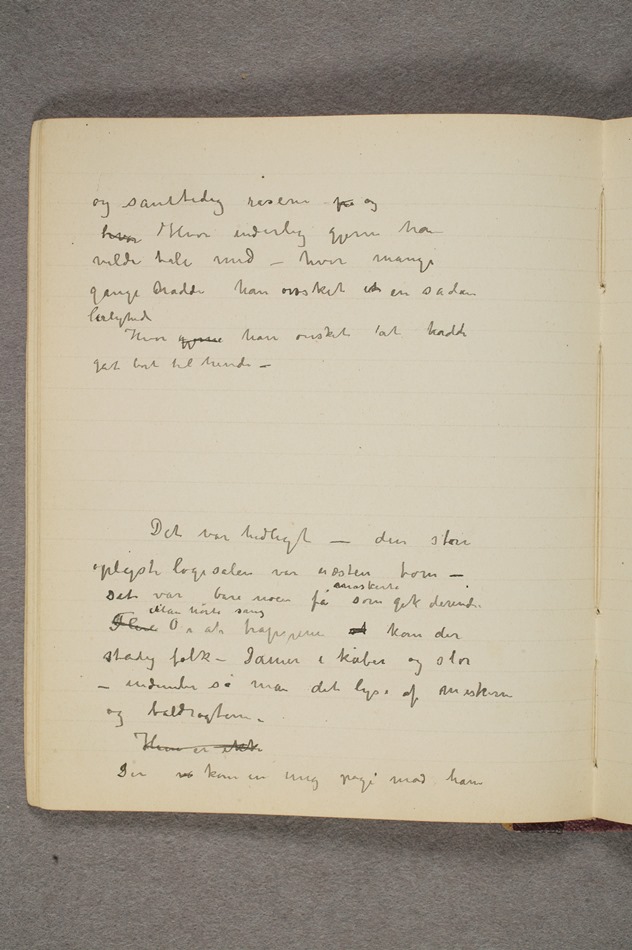 og samttidig rasene på og
hvor Hvor inderlig gjerne han
vilde tale med – hvor mange
gange hadde han onsket et en sadan
leilighed
Hvor gjerne han onsket at hadde
gåt bort til hende –
Det var hedligt – den store
oplyste logesalen var næsten tom –
Det var bare noen få maskerte som gik derinde
Man hørte sang
Op ad trapperne kom der
stadig folk – Damer i kåber og slør
– indunder så man det lyse af maskerne
og baldragterne.
Hun er ikke
Der kom en ung page mod ham